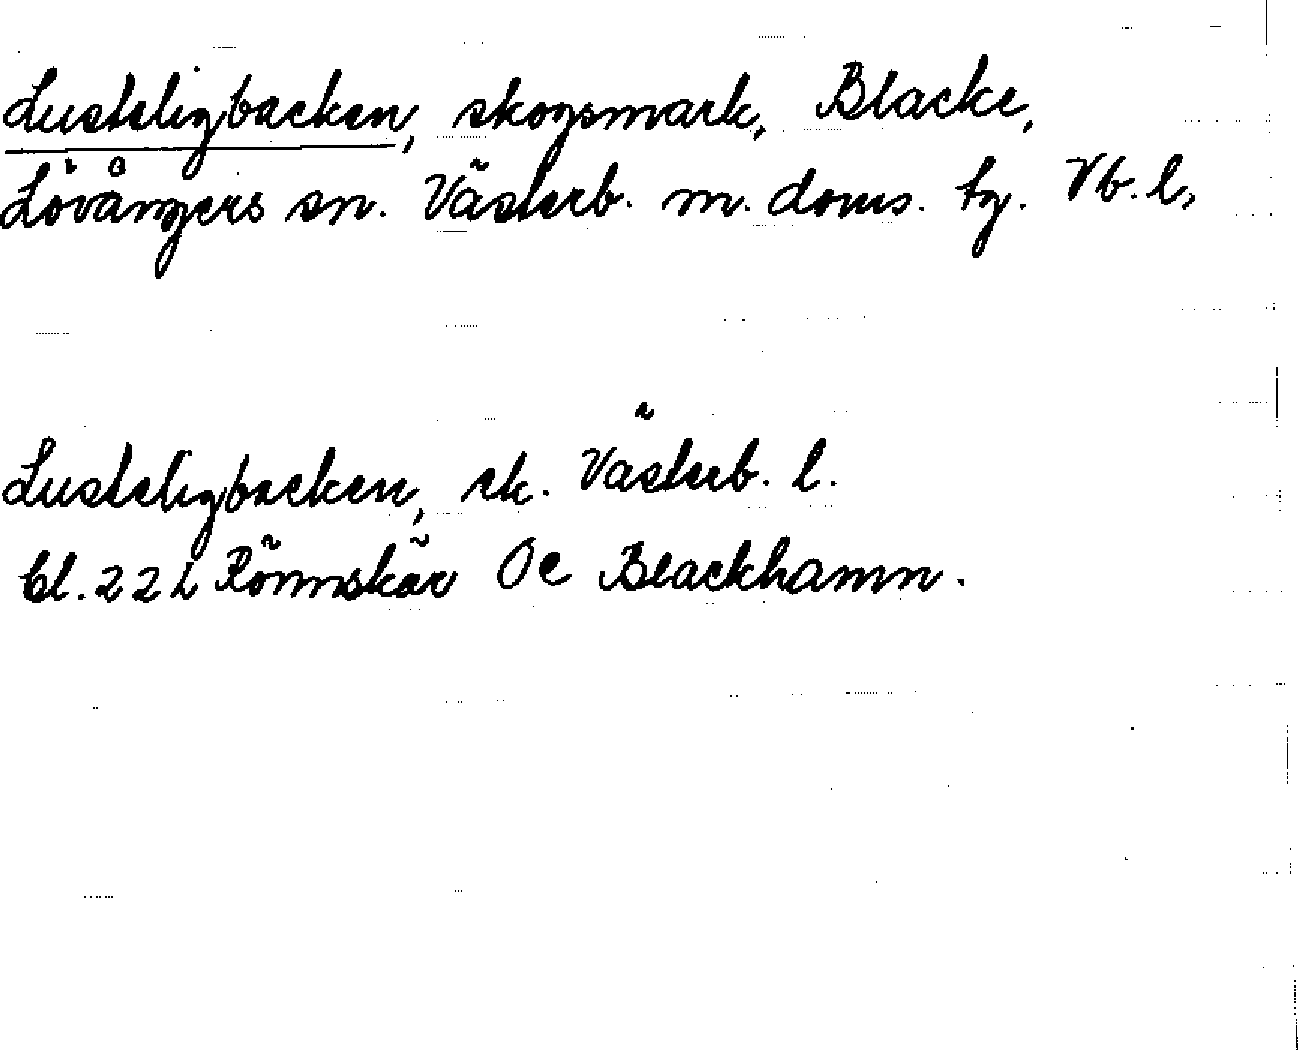 Lusteligbacken, skogsmark, Blacke,
Lövångers sn. Västerb. m. doms. tg. Vb. l,
Lusteligbacken, sk. Västerb. l.
bl. 22 L Rönnskär Oc Blackhamn.